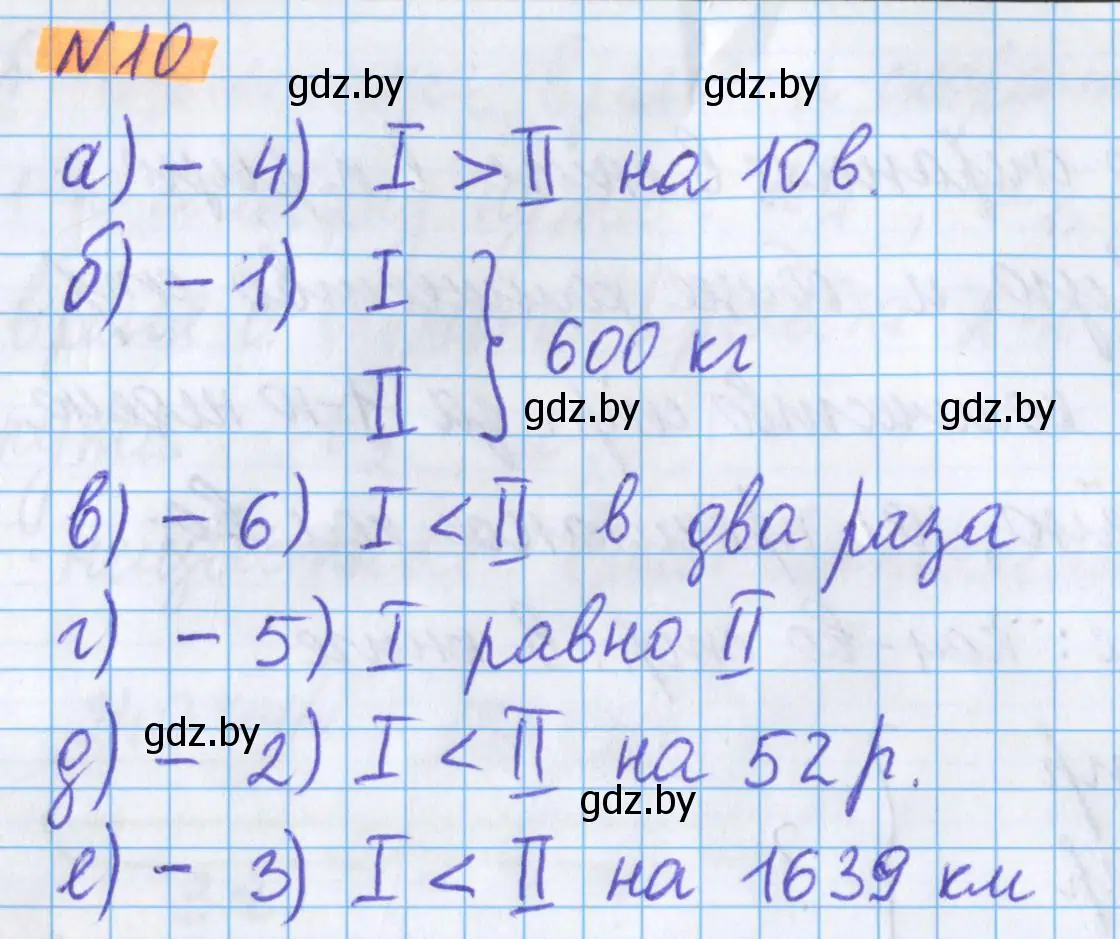 №10
gdz.by gdz.by
а) - 4) I > II на 10 в.
б) - 1) I
II } 600 кг
gdz.by gdz.by
в) - 6) I < II в два раза
г) - 5) I равно II
gdz.by
д) - 2) I < II на 52 р.
gdz.by
е) - 3) I < II на 1639 км